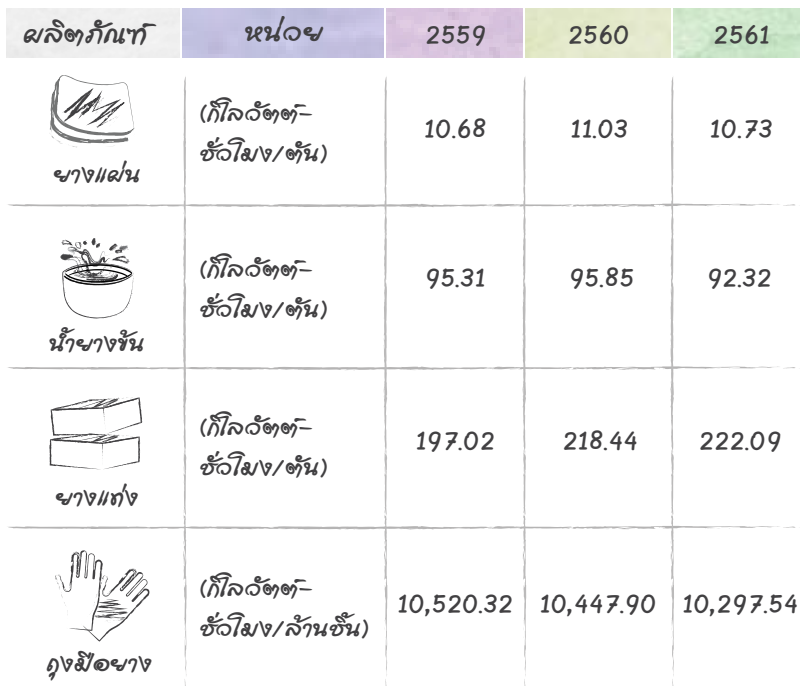 ผลิตภัณฑ์ หน่วย 2559 2560 2561
(กิโลวัตต์-
ชั่วโมง/ตัน)
10.68 11.03 10.73
ยางแผ่น
(กิโลวัตต์-
ชั่วโมง/ตัน)
95.31 95.85 92.32
น้ำยางข้น
(กิโลวัตต์-
ชั่วโมง/ตัน)
197.02 218.44 222.09
ยางแท่ง
(กิโลวัตต์-
ชั่วโมง/ล้านชิ้น)
10,520.32 10,447.90 10,297.54
ถุงมือยาง